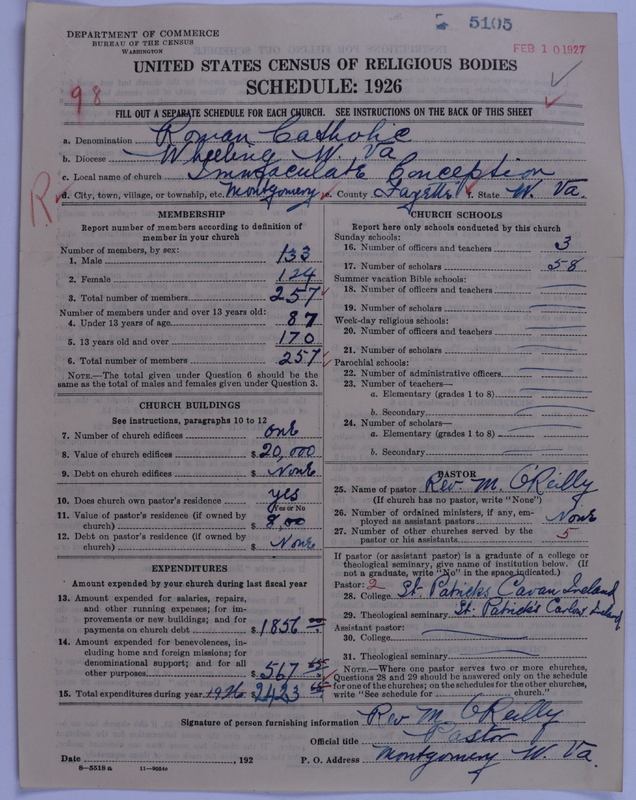 DEPARTMENT OF COMMERCE
BUREAU OF THE CENSUS
WASHINGTON
5105
FEB 10 1927
UNITED STATES CENSUS OF RELIGIOUS BODIES
SCHEDULE: 1926
98
FILL OUT A SEPARATE SCHEDULE FOR EACH CHURCH. SEE INSTRUCTIONS ON THE BACK OF THIS SHEET
a. Denomination Roman Catholic
b. Diocese Wheeling W. Va
c. Local name of church Immaculate Conception
R
d. City, town, village, or township, etc. Montgomery e. County Fayette f. State W. Va.
MEMBERSHIP
Report number of members according to definition of
member in your church
Number of members, by sex:
1. Male 133
2. Female 124
3. Total number of members 257
Number of members under and over 13 years old:
4. Under 13 years of age 87
5. 13 years old and over 170
6. Total number of members 257
NOTE.—The total given under Question 6 should be the
same as the total of males and females given under Question 3.
CHURCH BUILDINGS
See instructions, paragraphs 10 to 12
7. Number of church edifices One
8. Value of church edifices $ 20,000
9. Debt on church edifices $ None
10. Does church own pastor's residence yes
(Yes or No)
11. Value of pastor's residence (if owned by
church) $ 8,00
12. Debt on pastor's residence (if owned by
church) $ None
EXPENDITURES
Amount expended by your church during last fiscal year
13. Amount expended for salaries, repairs,
and other running expenses; for im-
provements or new buildings; and for
payments on church debt $ 1856
14. Amount expended for benevolences, in-
cluding home and foreign missions; for
denominational support; and for all
other purposes $ 567
15. Total expenditures during year 1926 2423
CHURCH SCHOOLS
Report here only schools conducted by this church
Sunday schools:
16. Number of officers and teachers 3
17. Number of scholars 58
Summer vacation Bible schools:
18. Number of officers and teachers
19. Number of scholars
Week-day religious schools:
20. Number of officers and teachers
21. Number of scholars
Parochial schools:
22. Number of administrative officers
23. Number of teachers—
a. Elementary (grades 1 to 8)
b. Secondary
24. Number of scholars—
a. Elementary (grades 1 to 8)
b. Secondary
PASTOR
25. Name of pastor Rev. M. O'Reilly
(If church has no pastor, write "None")
26. Number of ordained ministers, if any, em-
ployed as assistant pastors None
27. Number of other churches served by the
pastor or his assistants 5
If pastor (or assistant pastor) is a graduate of a college or
theological seminary, give name of institution below. (If
not a graduate, write "No" in the space indicated.)
Pastor: 2
28. College St. Patricks Cavan Ireland
29. Theological seminary St. Patrick's Carlow Ireland
Assistant pastor:
30. College
31. Theological seminary
NOTE.—Where one pastor serves two or more churches,
Questions 28 and 29 should be answered only on the schedule
for one of the churches; on the schedules for the other churches,
write "See schedule for church."
Signature of person furnishing information Rev M. O'Reilly
Official title Pastor
Date , 192 P. O. Address Montgomery W. Va.
8—5518a 11—9054a